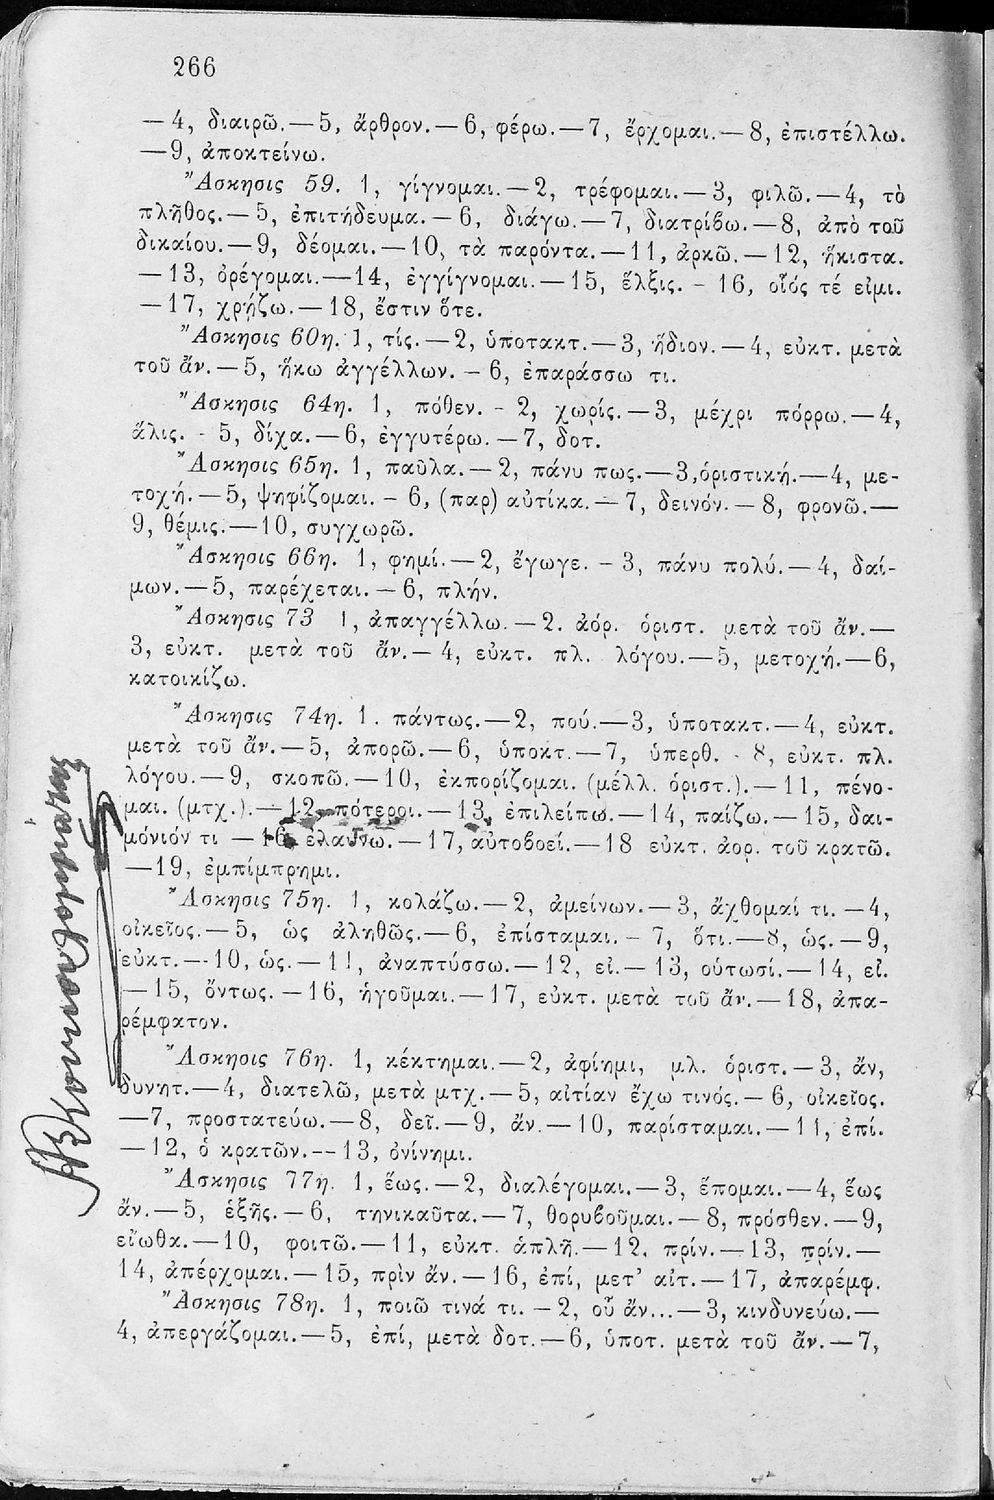 266
— 4, διαιρῶ. — 5, ἄρθρον. — 6, φέρω. — 7, ἔρχομαι. — 8, ἐπιστέλλω.
— 9, ἀποκτείνω.
Ἄσκησις 59. 1, γίγνομαι. — 2, τρέφομαι. — 3, φιλῶ. — 4, τὸ
πλῆθος. — 5, ἐπιτήδευμα. — 6, διάγω. — 7, διατρίβω. — 8, ἀπὸ τοῦ
δικαίου. — 9, δέομαι. — 10, τὰ παρόντα. — 11, ἀρκῶ. — 12, ἥκιστα.
— 13, ὀρέγομαι. — 14, ἐγγίγνομαι. — 15, ἕλξις. - 16, οἷός τέ εἰμι.
— 17, χρῄζω. — 18, ἔστιν ὅτε.
Ἄσκησις 60η. 1, τίς. — 2, ὑποτακτ. — 3, ἥδιον. — 4, εὐκτ. μετὰ
τοῦ ἄν. — 5, ἥκω ἀγγέλλων. - 6, ἐπαράσσω τι.
Ἄσκησις 64η. 1, πόθεν. - 2, χωρίς. — 3, μέχρι πόρρω. — 4,
ἅλις. - 5, δίχα. — 6, ἐγγυτέρω. — 7, δοτ.
Ἄσκησις 65η. 1, παῦλα. — 2, πάνυ πως. — 3, ὁριστική. — 4, με-
τοχή. — 5, ψηφίζομαι. - 6, (παρ) αὐτίκα. — 7, δεινόν. — 8, φρονῶ. —
9, θέμις. — 10, συγχωρῶ.
Ἄσκησις 66η. 1, φημί. — 2, ἔγωγε. - 3, πάνυ πολύ. — 4, δαί-
μων. — 5, παρέχεται. — 6, πλήν.
Ἄσκησις 73 1, ἀπαγγέλλω. — 2. ἀόρ. ὁριστ. μετὰ τοῦ ἄν. —
3, εὐκτ. μετὰ τοῦ ἄν. — 4, εὐκτ. πλ. λόγου. — 5, μετοχή. — 6,
κατοικίζω.
Ἄσκησις 74η. 1. πάντως. — 2, πού. — 3, ὑποτακτ. — 4, εὐκτ.
μετὰ τοῦ ἄν. — 5, ἀπορῶ. — 6, ὑποκτ. — 7, ὑπερθ. - 8, εὐκτ. πλ.
λόγου. — 9, σκοπῶ. — 10, ἐκπορίζομαι. (μέλλ. ὁριστ.). — 11, πένο-
μαι. (μτχ.). — 12, πότεροι. — 13, ἐπιλείπω. — 14, παίζω. — 15, δαι-
μόνιόν τι — 16, ἐλαύνω. — 17, αὐτοβοεί. — 18 εὐκτ. ἀορ. τοῦ κρατῶ.
— 19, ἐμπίμπρημι.
Ἄσκησις 75η. 1, κολάζω. — 2, ἀμείνων. — 3, ἄχθομαί τι. — 4,
οἰκεῖος. — 5, ὡς ἀληθῶς. — 6, ἐπίσταμαι. - 7, ὅτι. — 8, ὡς. — 9,
εὐκτ. — 10, ὡς. — 11, ἀναπτύσσω. — 12, εἰ. — 13, οὑτωσί. — 14, εἰ.
— 15, ὄντως. — 16, ἡγοῦμαι. — 17, εὐκτ. μετὰ τοῦ ἄν. — 18, ἀπα-
ρέμφατον.
Ἄσκησις 76η. 1, κέκτημαι. — 2, ἀφίημι, μλ. ὁριστ. — 3, ἄν,
δυνητ. — 4, διατελῶ, μετὰ μτχ. — 5, αἰτίαν ἔχω τινός. — 6, οἰκεῖος.
— 7, προστατεύω. — 8, δεῖ. — 9, ἄν. — 10, παρίσταμαι. — 11, ἐπί.
— 12, ὁ κρατῶν. -- 13, ὀνίνημι.
Ἄσκησις 77η. 1, ἕως. — 2, διαλέγομαι. — 3, ἕπομαι. — 4, ἕως
ἄν. — 5, ἑξῆς. — 6, τηνικαῦτα. — 7, θορυβοῦμαι. — 8, πρόσθεν. — 9,
εἴωθα. — 10, φοιτῶ. — 11, εὐκτ. ἁπλῆ. — 12, πρίν. — 13, πρίν. —
14, ἀπέρχομαι. — 15, πρὶν ἄν. — 16, ἐπί, μετ' αἰτ. — 17, ἀπαρέμφ.
Ἄσκησις 78η. 1, ποιῶ τινά τι. — 2, οὗ ἄν... — 3, κινδυνεύω. —
4, ἀπεργάζομαι. — 5, ἐπί, μετὰ δοτ. — 6, ὑποτ. μετὰ τοῦ ἄν. — 7,